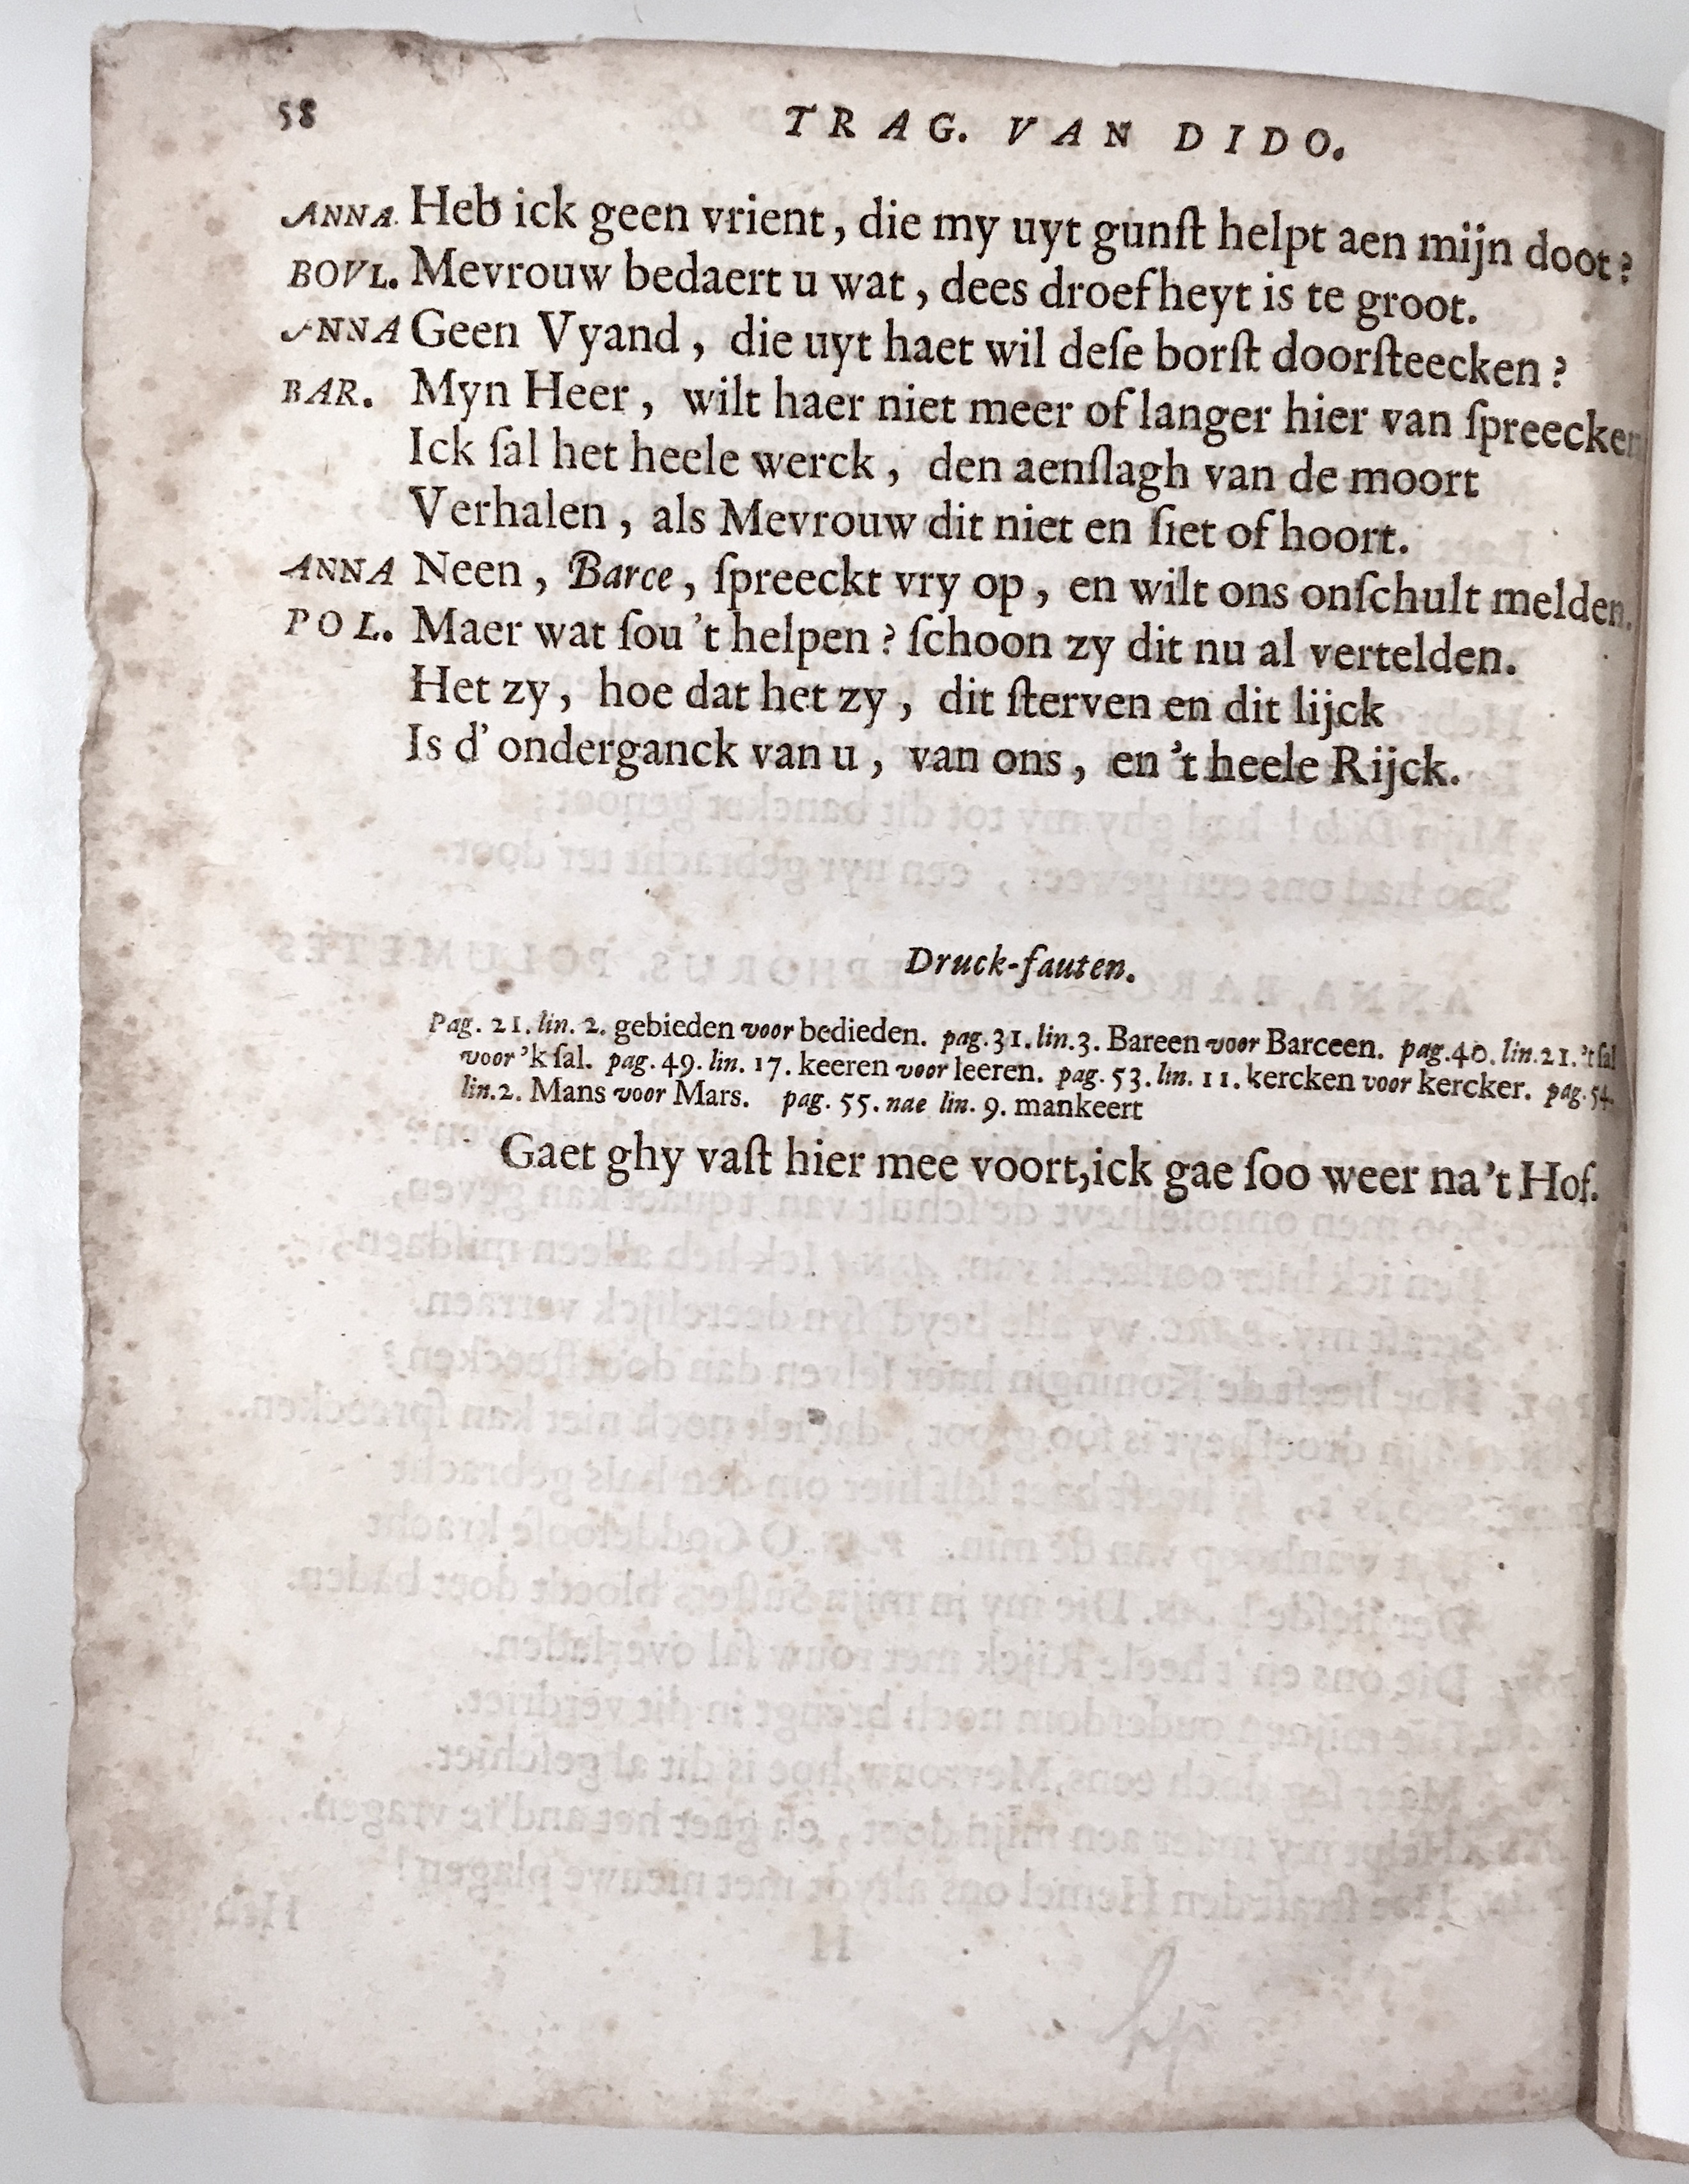 58 TRAG. VAN DIDO.
ANNA. Heb ick geen vrient, die my uyt gunſt helpt aen mijn doot?
BOVL. Mevrouw bedaert u wat, dees droefheyt is te groot.
ANNA Geen Vyand, die uyt haet wil deſe borſt doorſteecken?
BAR. Myn Heer, wilt haer niet meer of langer hier van ſpreecken
Ick ſal het heele werck, den aenſlagh van de moort
Verhalen, als Mevrouw dit niet en ſiet of hoort.
ANNA Neen, Barce, ſpreeckt vry op, en wilt ons onſchult melden.
POL. Maer wat ſou 't helpen? ſchoon zy dit nu al vertelden.
Het zy, hoe dat het zy, dit ſterven en dit lijck
Is d' onderganck van u, van ons, en 't heele Rijck.
Druck-fauten.
Pag. 21. lin. 2. gebieden voor bedieden. pag. 31. lin. 3. Bareen voor Barceen. pag. 40. lin. 21. 't ſal
voor 'k ſal. pag. 49. lin. 17. keeren voor leeren. pag. 53. lin. 11. kercken voor kercker. pag. 54.
lin. 2. Mans voor Mars. pag. 55. nae lin. 9. mankeert
Gaet ghy vaſt hier mee voort, ick gae ſoo weer na 't Hof.